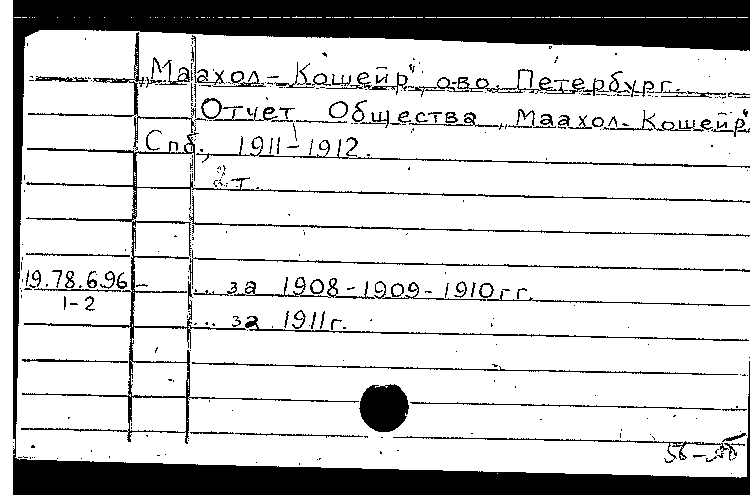 „Маахол-Кошейр", ово. Петербург.
Отчет Общества „Маахол-Кошейр".
Спб., 1911-1912.
2 т.
19.78.6.96 - ... за 1908-1909-1910 гг.
1-2
... за 1911 г.
56-